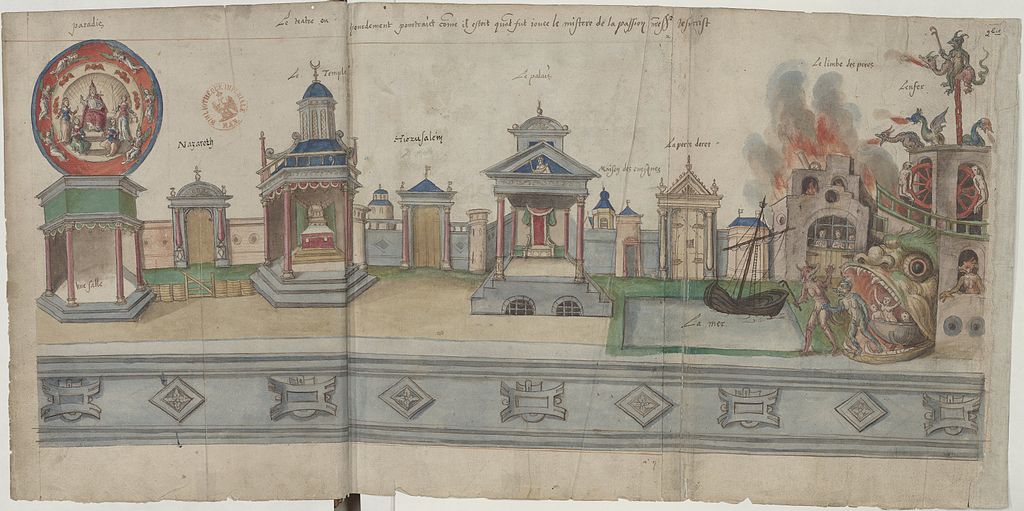 paradis
Le teatre ou hourdement pourtraict come il estoit quãt fut ioue le mistere de la passion nre Sr Jesucrist
Nazareth
Le Temple
BIBLIOTHÈQUE IMPÉRIALE
MAN.
Hierusalem
Le palais
Maison des euesques
La porte doree
Le limbe des peres
Lenfer
vne salle
La mer